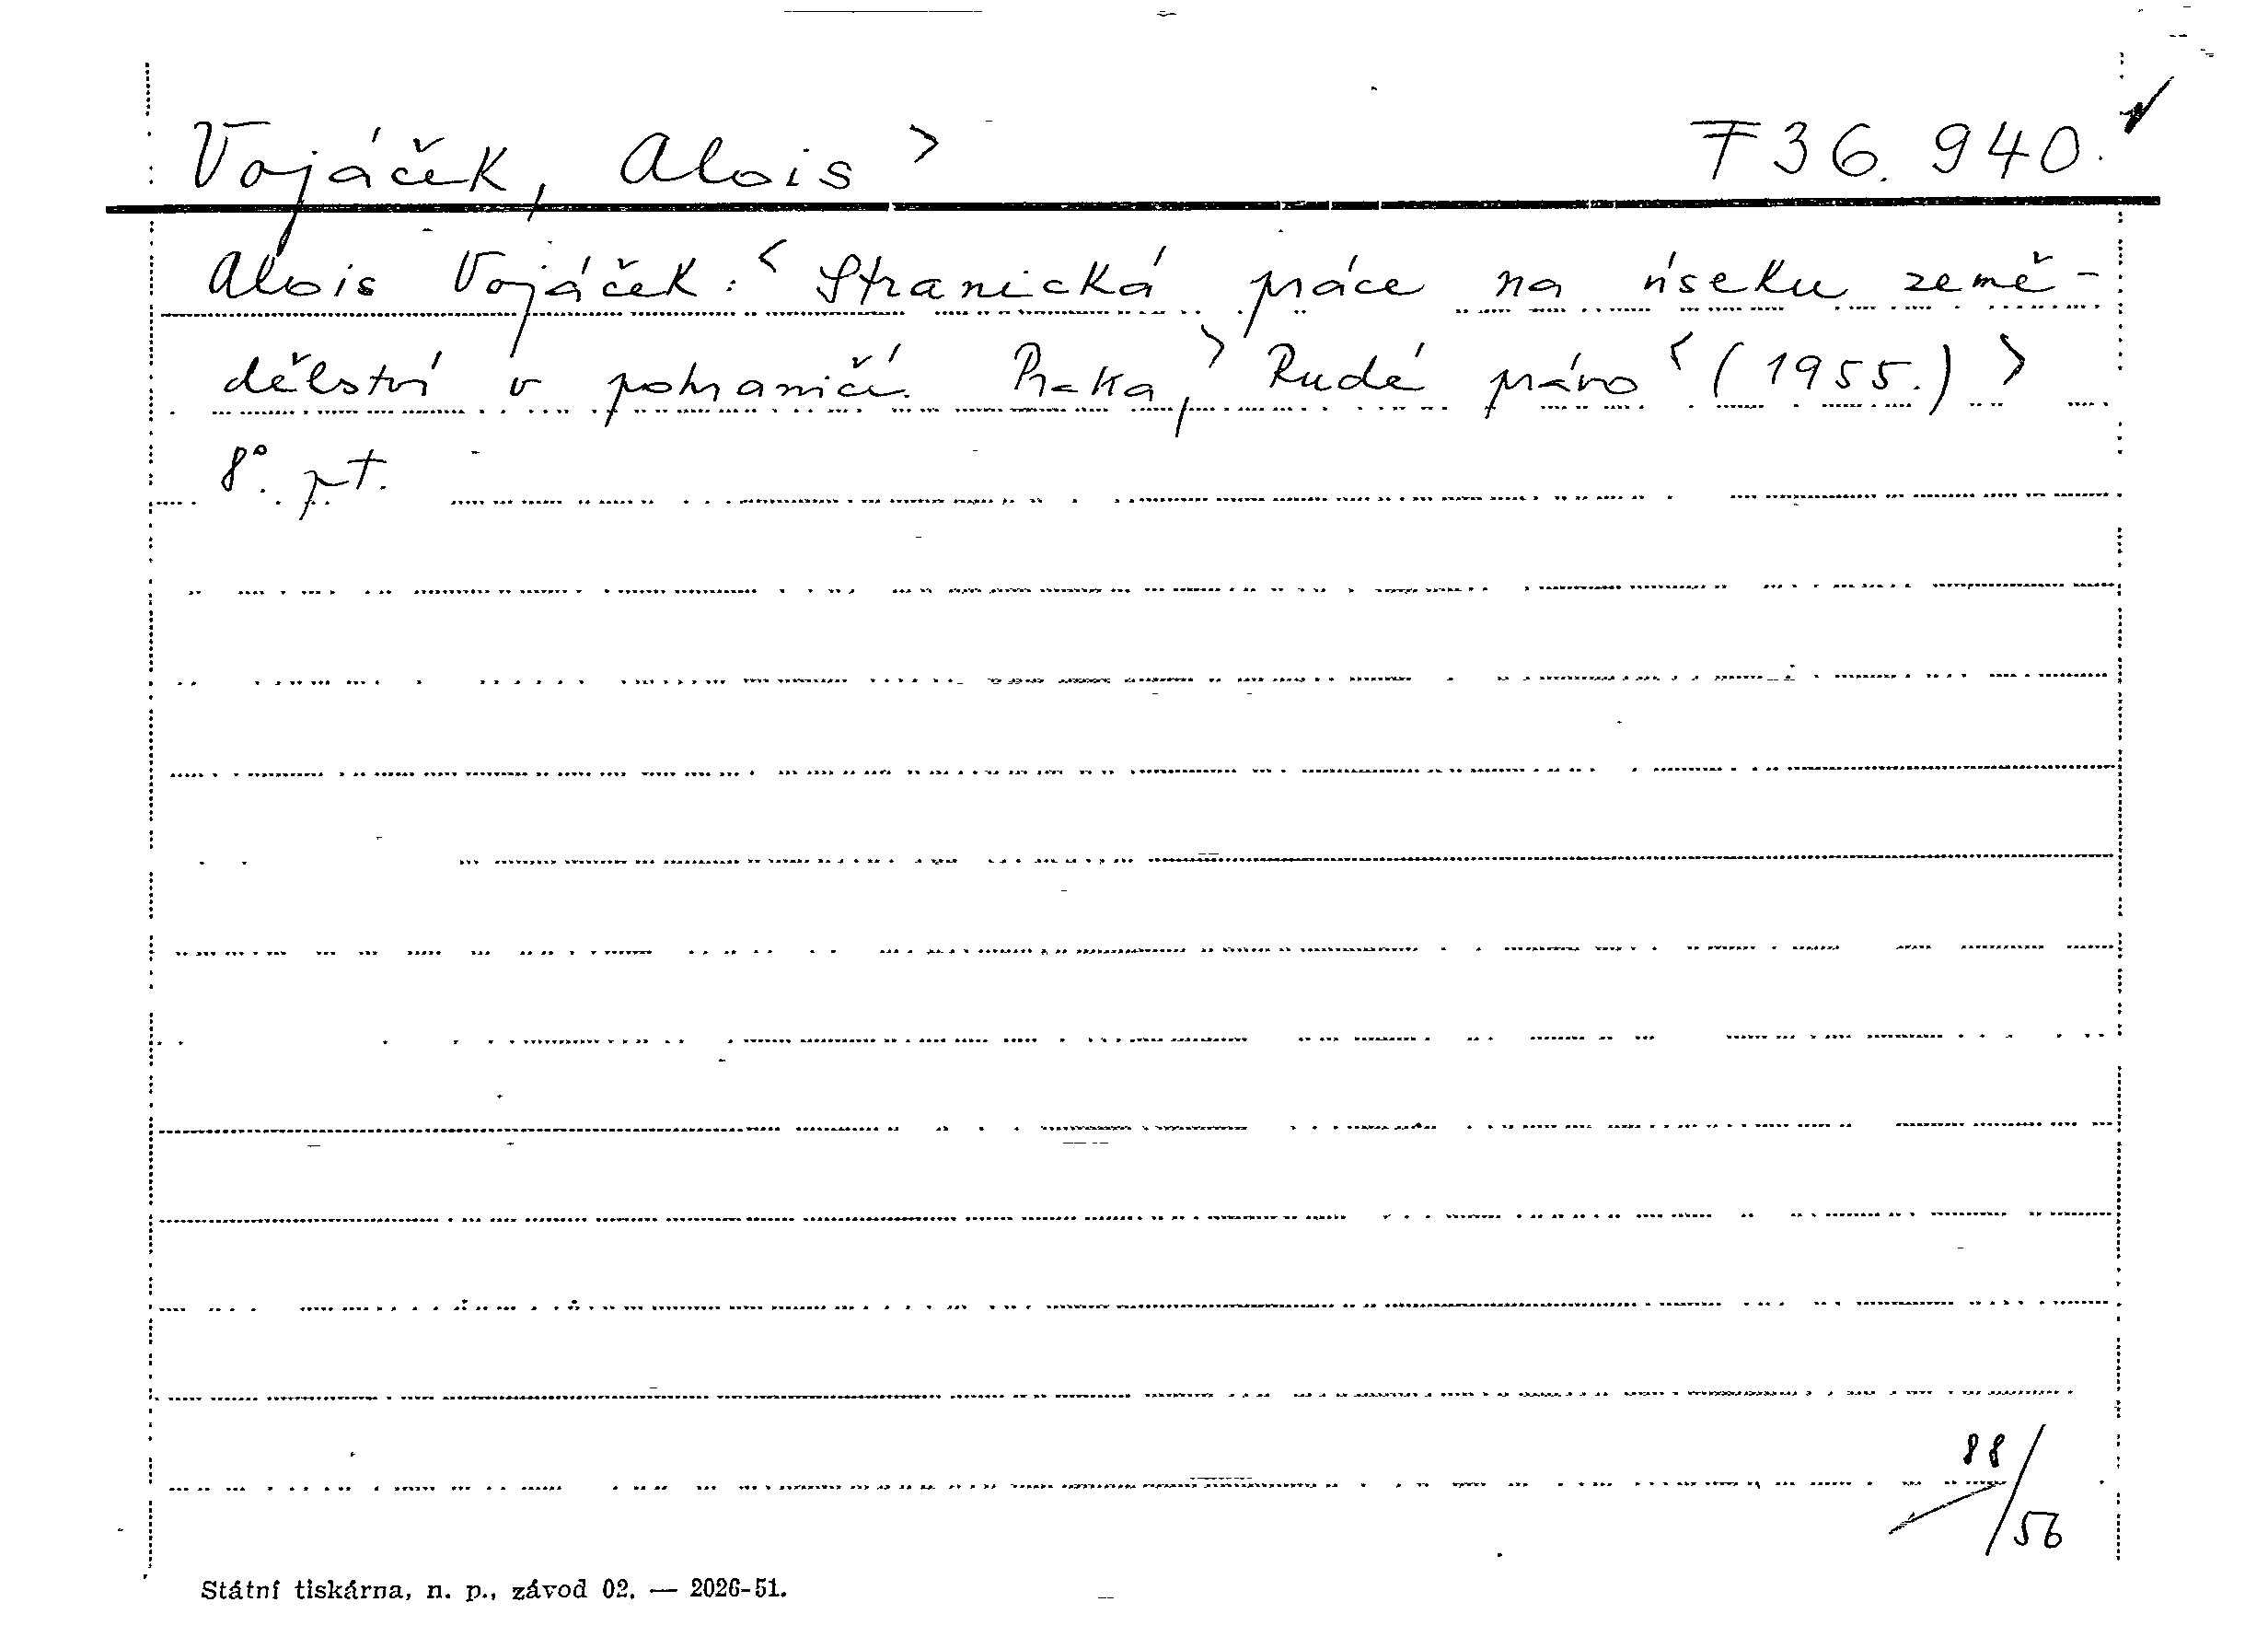 Vojáček, Alois >
F 36. 940.
Alois Vojáček: < Stranická práce na úseku země-
dělství v pohraničí. Pr-ha, > Rudé právo < (1955.) >
8°. pt.
88/56
Státní tiskárna, n. p., závod 02. — 2026-51.